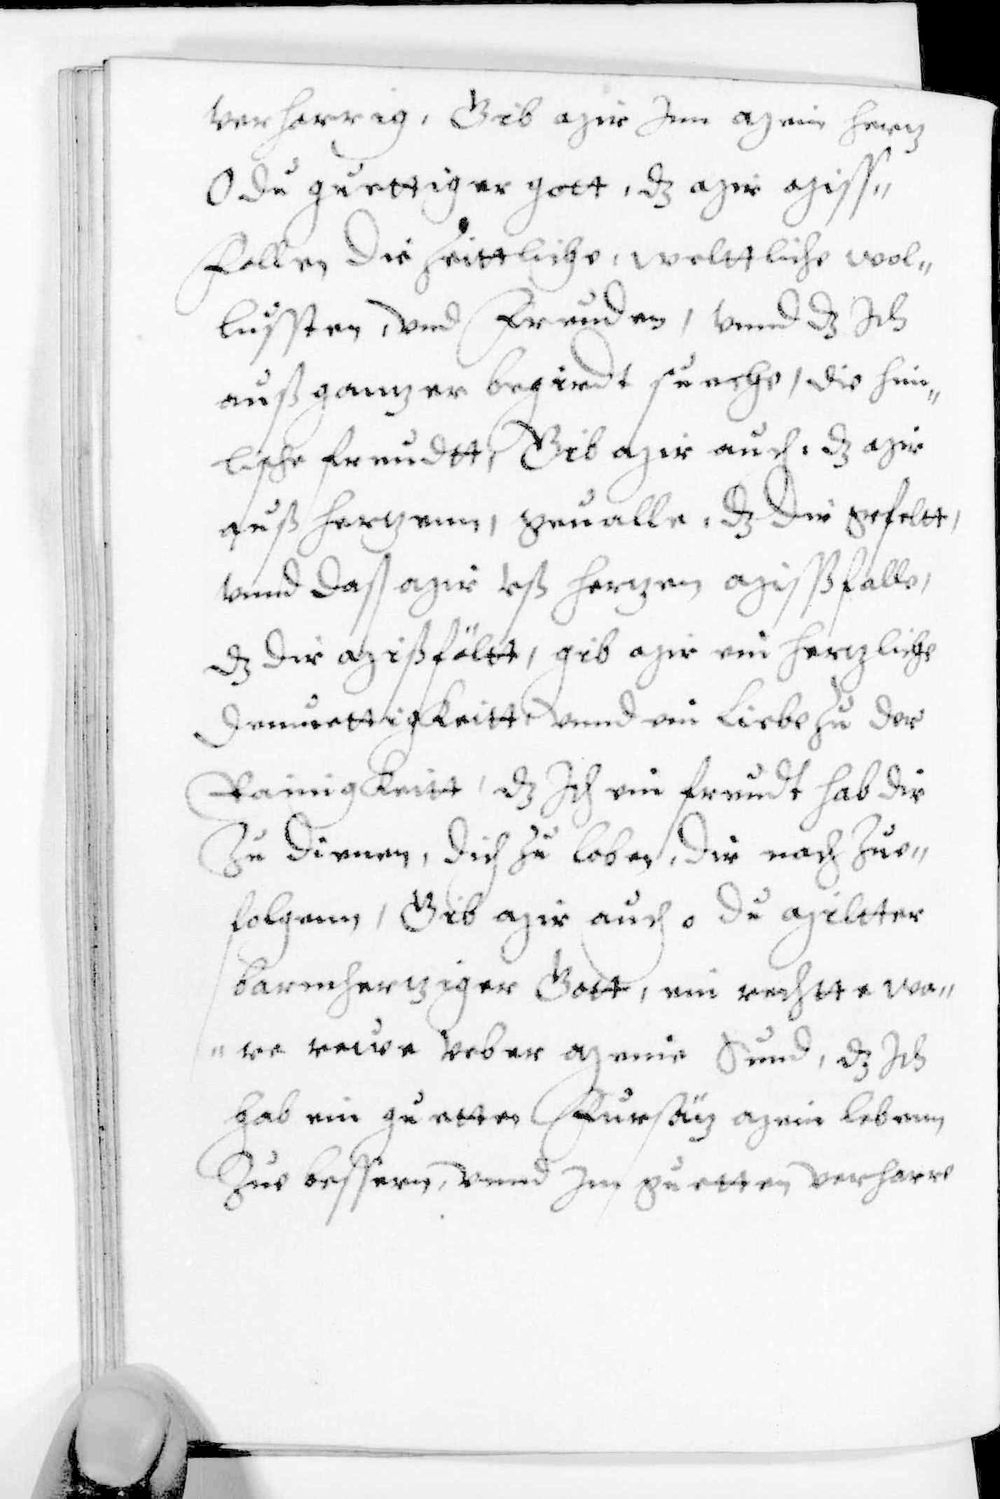 verharrig, Gib mir Inn mein hertz
O du guettiger gott, dz mir miss„
fallen die zeittliche, welttliche wol„
lussten, vnd Freuden, vnnd dz Ich
auß ganzer begirdt sueche, die him„
lische freudtt, Gib mir auch, dz mir
auß hertzenn, geualle, dz dir gefeltt,
vnnd daß mir vß hertzen missßfalle,
dz dir mißföltt, gib mir ein hertzliche
demuettigkeitt, vnnd ein Liebe zu der
Rainigkeitt, dz Ich ein freudt hab dir
Zu dienen, dich zu loben, dir nach Zue„
folgenn, Gib mir auch o du miltter
barmhertziger Gott, ein rechtte wa„
„re reuwe veber meine Sünd, dz Ich
hab ein guetten Fursatz mein lebenn
Zue bessern, vnnd Im guetten verharre